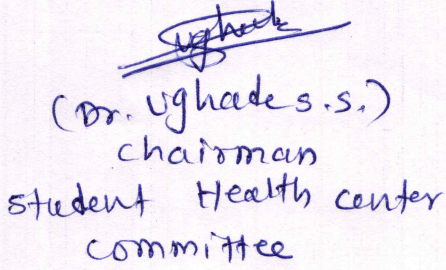 ughade
(Dr. Ughade s.s.)
chairman
student Health center
committee